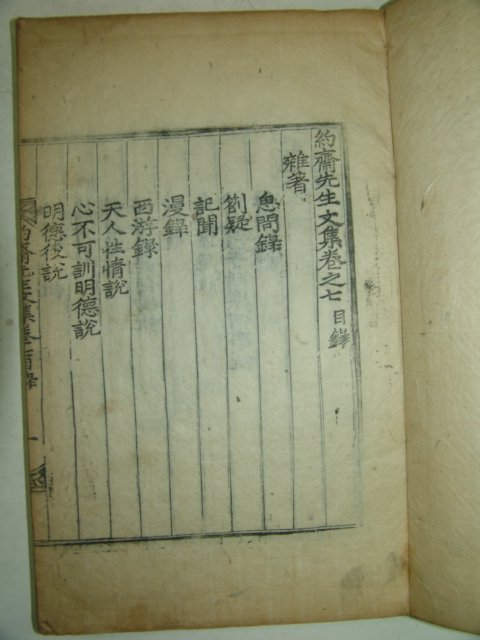 約齋先生文集卷之七 目錄
雜著
息間錄
劄疑
記聞
漫錄
西游錄
天人性情說
心不可訓明德說
明德後說
約齋先生文集卷